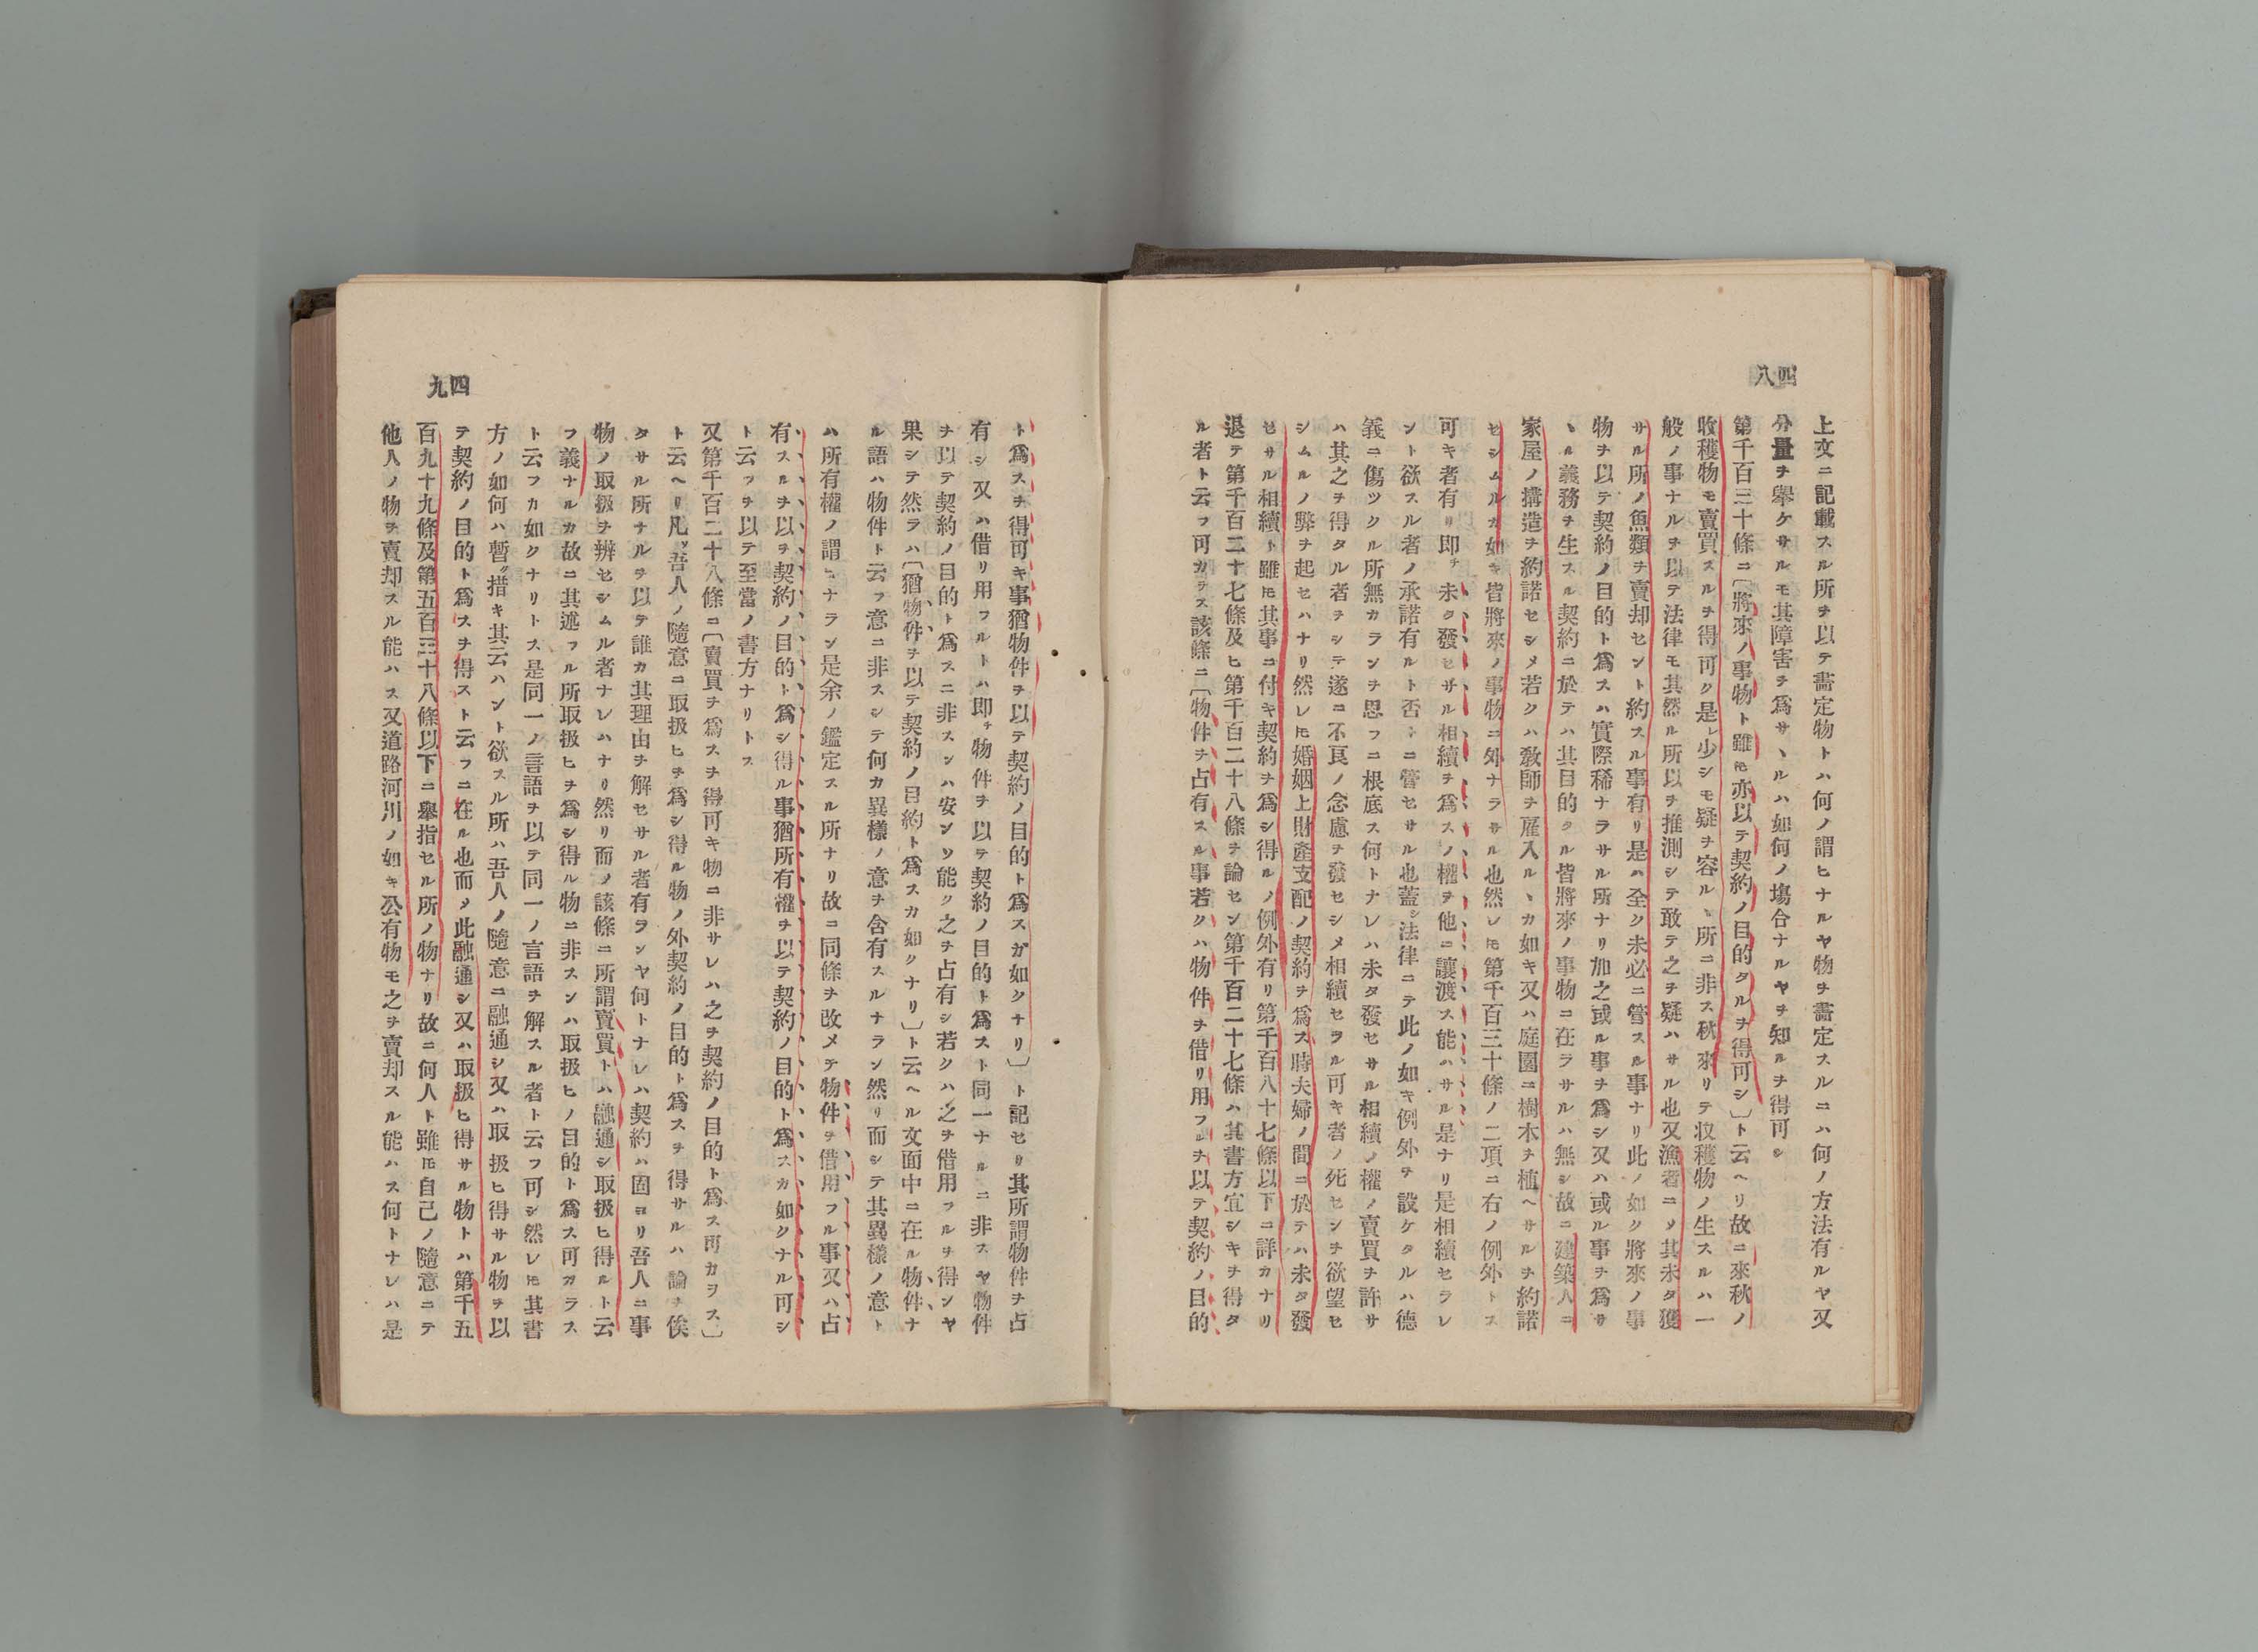 四八
上文ニ記載スル所ヲ以テ畵定物トハ何ノ謂ヒナルヤ物ヲ畵定スルニハ何ノ方法有ルヤ又
分量ヲ擧ケサルモ其障害ヲ爲サヽルハ如何ノ塲合ナルヤヲ知ルヲ得可シ
第千百三十條ニ〔將來ノ事物ト雖𪜈亦以テ契約ノ目的タルヲ得可シ〕ト云ヘリ故ニ來秋ノ
收穫物モ賣買スルヲ得可ク是レ少シモ疑ヲ容ルヽ所ニ非ス秋來リテ収穫物ノ生スルハ一
般ノ事ナルヲ以テ法律モ其然ル所以ヲ推測シテ敢テ之ヲ疑ハサル也又漁者ニ〆其未タ獲
サル所ノ魚類ヲ賣却セント約スル事有リ是ハ全ク未必ニ管スル事ナリ此ノ如ク將來ノ事
物ヲ以テ契約ノ目的ト爲スハ實際稀ナラサル所ナリ加之或ル事ヲ爲シ又ハ或ル事ヲ爲サ
ヽル義務ヲ生スル契約ニ於テハ其目的タル皆將來ノ事物ニ在ラサルハ無シ故ニ建築人ニ
家屋ノ搆造ヲ約諾セシメ若クハ敎師ヲ雇入ルヽカ如キ又ハ庭園ニ樹木ヲ植ヘサルヲ約諾
セシムルカ如キ皆將來ノ事物ニ外ナラサル也然レ𪜈第千百三十條ノ二項ニ右ノ例外トス
可キ者有リ即チ未タ發セザル相續ヲ爲スノ權ヲ他ニ讓渡ス能ハサル是ナリ是相續セラレ
ント欲スル者ノ承諾有ルト否トニ管セサル也蓋シ法律ニテ此ノ如キ例外ヲ設ケタルハ德
義ニ傷ツクル所無カランヲ思フニ根底ス何トナレハ未タ發セサル相續ノ權ノ賣買ヲ許サ
ハ其之ヲ得タル者ヲシテ遂ニ不良ノ念慮ヲ發セシメ相續セラル可キ者ノ死センヲ欲望セ
シムルノ弊ヲ起セハナリ然レ𪜈婚姻上財產支配ノ契約ヲ爲ス時夫婦ノ間ニ於テハ未タ發
セサル相續ト雖𪜈其事ニ付キ契約ヲ爲シ得ルノ例外有リ第千百八十七條以下ニ詳カナリ
退テ第千百二十七條及ヒ第千百二十八條ヲ論セン第千百二十七條ハ其書方宜シキヲ得タ
ル者ト云フ可カラス該條ニ〔物件ヲ占有スル事若クハ物件ヲ借リ用フルヲ以テ契約ノ目的
四九
ト爲スヲ得可キ事猶物件ヲ以テ契約ノ目的ト爲スガ如クナリ〕ト記セリ其所謂物件ヲ占
有シ又ハ借リ用フルトハ即チ物件ヲ以テ契約ノ目的ト爲スト同一ナルニ非スヤ物件
ヲ以テ契約ノ目的ト爲スニ非スンハ安ンソ能ク之ヲ占有シ若クハ之ヲ借用フルヲ得ンヤ
果シテ然ラハ〔猶物件ヲ以テ契約ノ目約ト爲スカ如クナリ〕ト云ヘル文面中ニ在ル物件ナ
ル語ハ物件ト云フ意ニ非スシテ何カ異樣ノ意ヲ含有スルナラン然リ而シテ其異樣ノ意ト
ハ所有權ノ謂ヒナラン是余ノ鑑定スル所ナリ故ニ同條ヲ改メテ物件ヲ借用フル事又ハ占
有スルヲ以ヲ契約ノ目的ト爲シ得ル事猶所有權ヲ以テ契約ノ目的ト爲スカ如クナル可シ
ト云フヲ以テ至當ノ書方ナリトス
又第千百二十八條ニ〔賣買ヲ爲スヲ得可キ物ニ非サレハ之ヲ契約ノ目的ト爲ス可カラス〕
ト云ヘリ凡ソ吾人ノ隨意ニ取扱ヒヲ爲シ得ル物ノ外契約ノ目的ト爲スヲ得サルハ論ヲ俟
タサル所ナルヲ以テ誰カ其理由ヲ解セサル者有ランヤ何トナレハ契約ハ固ヨリ吾人ニ事
物ノ取扱ヲ辨セシムル者ナレハナリ然リ而〆該條ニ所謂賣買トハ融通シ取扱ヒ得ルト云
フ義ナルカ故ニ其述フル所取扱ヒヲ爲シ得ル物ニ非スンハ取扱ヒノ目的ト爲ス可カラス
ト云フカ如クナリトス是同一ノ言語ヲ以テ同一ノ言語ヲ解スル者ト云フ可シ然レ𪜈其書
方ノ如何ハ暫ク措キ其云ハント欲スル所ハ吾人ノ隨意ニ融通シ又ハ取扱ヒ得サル物ヲ以
テ契約ノ目的ト爲スヲ得スト云フニ在ル也而〆此融通シ又ハ取扱ヒ得サル物トハ第千五
百九十九條及第五百三十八條以下ニ擧指セル所ノ物ナリ故ニ何人ト雖𪜈自己ノ隨意ニテ
他人ノ物ヲ賣却スル能ハス又道路河川ノ如キ公有物モ之ヲ賣却スル能ハス何トナレハ是